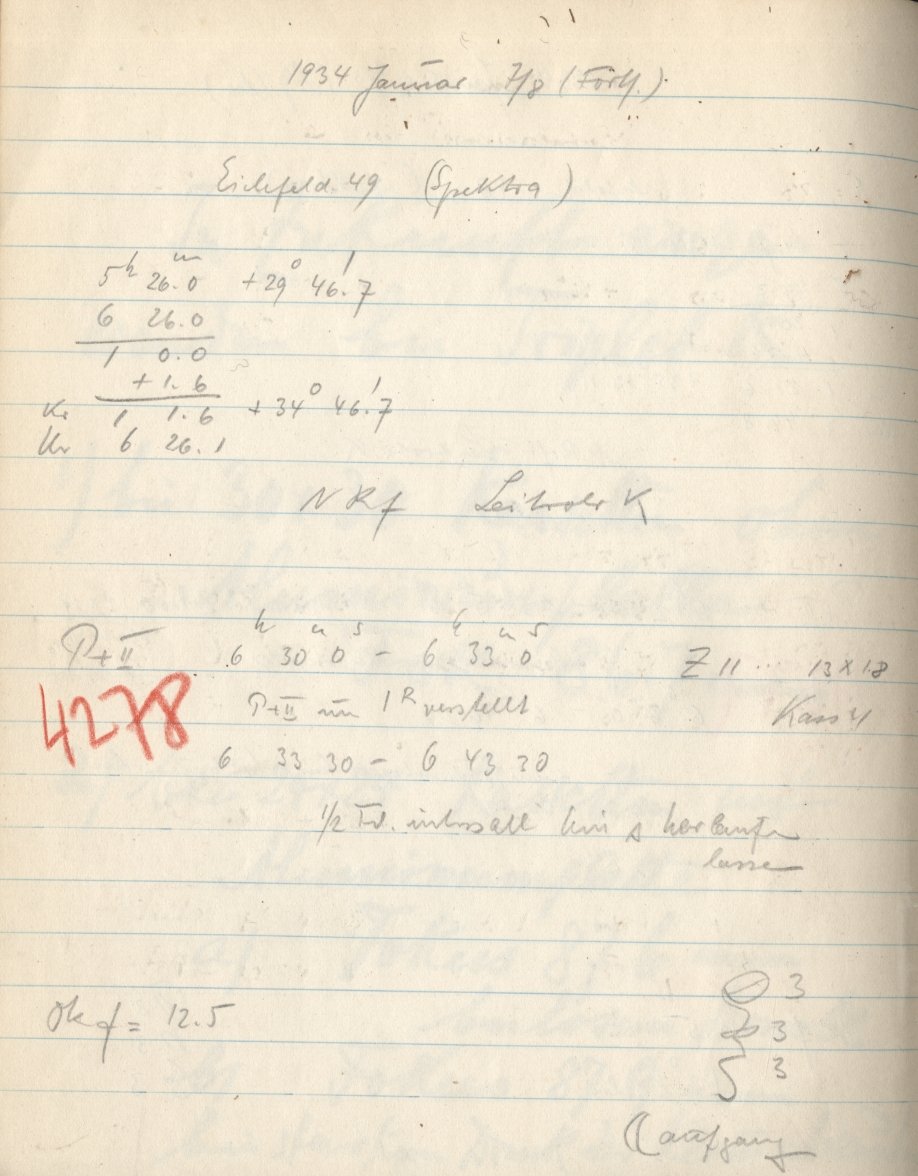 1934 Januar 7/8 (Fortf.)
Eichfeld 49 (Spektra)
5h 26.m0 +29° 46.'7
6 26.0
1 0.0
+1.6
Kr 1 1.6 +34° 46.'7
Ur 6 26.1
N Rf Leitrohr K
P+II 6h 30m 0s - 6h 33m 0s Z 11 ... 13x18
P+II um 1R verstellt Kass 4
4278
6 33 30 - 6 43 30
1/2 Fd. intervall hin &amp; herlaufen
lassen
Okf = 12.5
3
3
3
aufgang